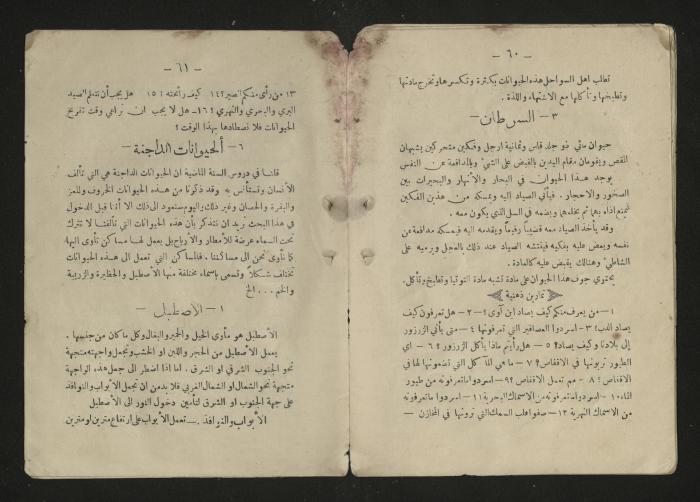 — ٦٠ —
تعالب اهل السواحل هذه الحيوانات بكثرة وتكسرها وتخرج مادتها
وتطبخها وتأكلها مع الاشتهاء واللذة .
٣ – السرطان
حيوان مائي ذو جلد قاس وثمانية ارجل وفكين متحركين يشبهان
المقص ويقومان مقام اليدين بالقبض على الشيء وبالمدافعة عن النفس
يوجد هذا الحيوان في البحار والأنهار والبحيرات بين
الصخور والاحجار . فيأتي الصياد اليه ويمسكه من هذين الفكين
لمنع اذاه بهما ثم يخلعهما ويضعه في السل الذي يكون معه .
وقد يأخذ الصياد معه قضيباً رفيعاً ويقدمه اليه فيمسكه مدافعة عن
نفسه ويعض عليه بفكيه فينتشه الصياد عند ذلك بالعجل ويرميه على
الشاطئ وهنالك يقبض عليه كالعادة .
يحتوي جوف هذا الحيوان على مادة تشبه مادة التوتيا وتطبخ وتأكل .
تمارين ذهنية
١ – من يعرف منكم كيف يصاد ابن آوى؟ ٢ – هل تعرفون كيف
يصاد الدب؟ ٣ – اسردوا العصافير التي تعرفونها ٤ – متى يأتي الزرزور
إلى بلادنا وكيف يصاد؟ ٥ – هل رأيتم ماذا يأكل الزرزور؟ ٦ – اي
الطيور تربونها في الاقفاص؟ ٧ – ما هي المآكل التي تضعونها لها في
الاقفاص؟ ٨ – مم تعمل الاقفاص؟ ٩ – اسردوا ما تعرفونه من طيور
الماء ١٠ – اسردوا ما تعرفونه من الاسماك البحرية ١١ – اسردوا ما تعرفونه
من الاسماك النهرية ١٢ – صفوا علب السمك التي ترونها في المخازن –
— ٦١ —
١٣ من رأى منكم الصير؟ ١٤ كيف رائحته؟ ١٥ هل يجب أن نتعلم الصيد
البري والبحري والنهري؟ ١٦ – هل لا يجب ان نراعي وقت تفريخ
الحيوانات فلا نصطادها بهذا الوقت؟
٦ – ألحيوانات الداجنة
قلنا في دروس السنة الماضية ان الحيوانات الداجنة هي التي تتألف
الأنسان وتستأنس به وقد ذكرنا من هذه الحيوانات الخروف والمعز
والبقرة والحصان وغير ذلك واليوم سنعود الى ذلك الا أننا قبل الدخول
في هذا البحث نريد ان نتذكر بأن هذه الحيوانات التي تتألفنا لا تترك
تحت السماء عرضة للأمطار والأرياح بل يعمل لها مساكن تأوى اليها
كما نأوى نحن الى مساكننا . فالمساكن التي تعمل الى هذه الحيوانات
تختلف شكلاً وتسمى باسماء مختلفة منها الأصطبل والحظيرة والزريبة
والخم . . . الخ
١ – الاصطبل
الأصطبل هو مأوى الخيل والحمير والبغال وكل ما كان من جنسها .
يعمل الأصطبل من الحجر واللبن او الخشب وتجعل واجهته متجهة
نحو الجنوب الشرقي او الشرق . اما اذا اضطر الى جعل هذه الواجهة
متجهة نحو الشمال او الشمال الغربي فلا بد من ان تجعل الأبواب والنوافذ
على جهة الجنوب او الشرق لتأمين دخول النور الى الأصطبل
الأبواب والنوافذ . – تعمل الأبواب على ارتفاع مترين او مترين